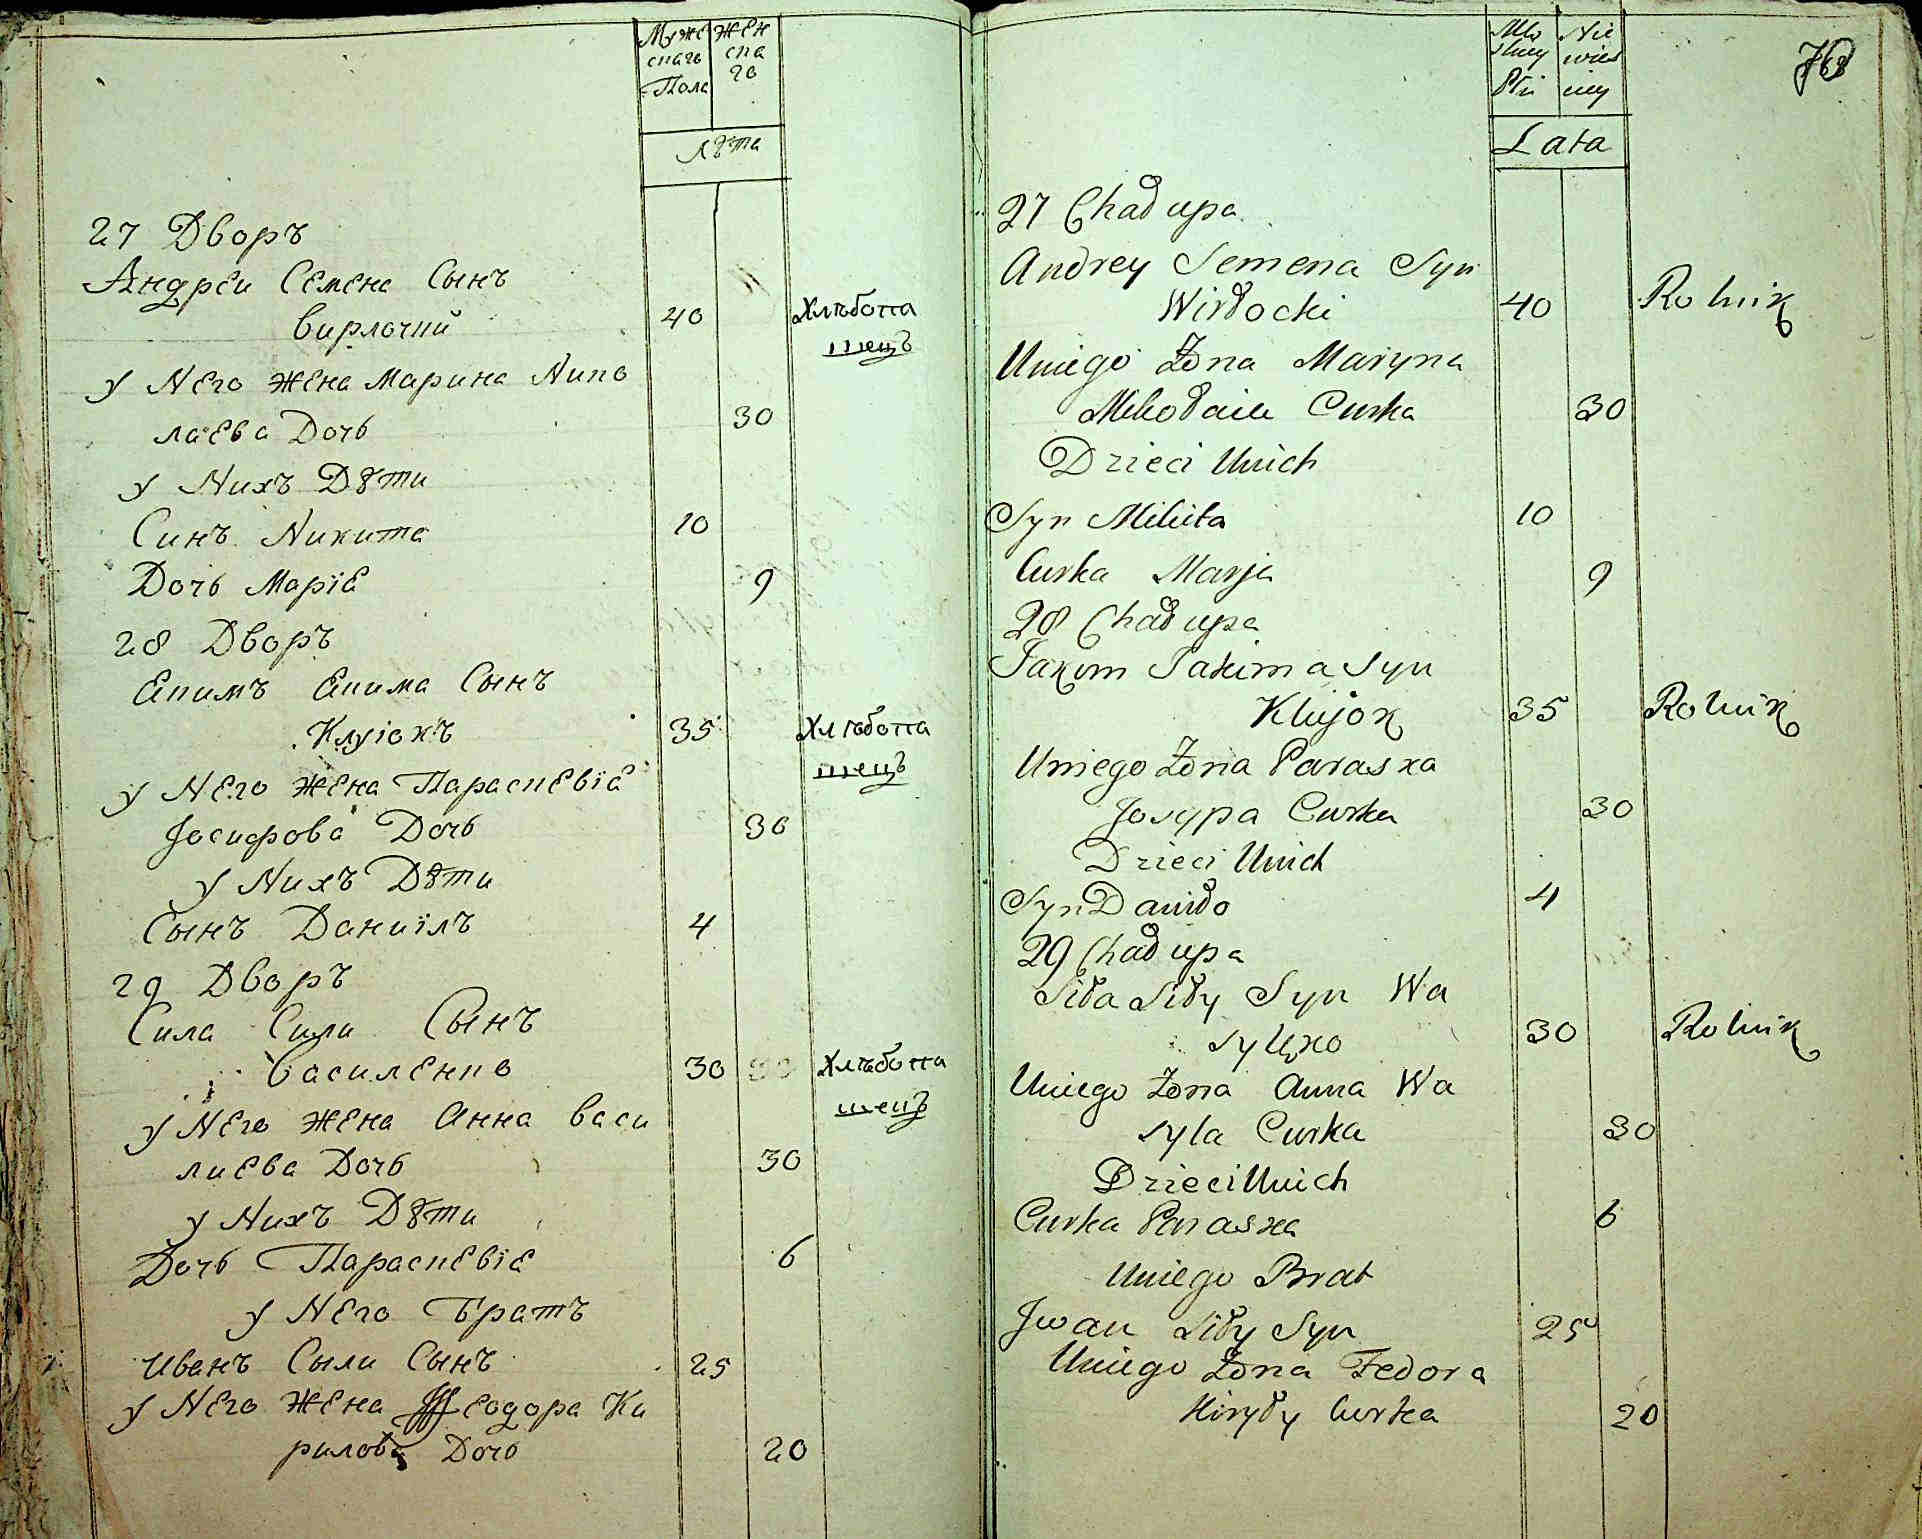 Муже Жен
скаго ска
Пола го
Лѣта
27 Дворъ
Андреи Семена Сынъ
Вирлочий
40
Хлѣбопа
шецъ
у Него жена Марина Нико
лаева Дочь
30
у Нихъ Дѣти
Синъ Никита
10
Дочь Маріе
9
28 Дворъ
Екимъ Екима Сынъ
Клуіокъ
35
Хлѣбопа
шецъ
у Него жена Параскевіе
Іосифова Дочь
30
у Нихъ Дѣти
Сынъ Даниілъ
4
29 Дворъ
Сила Сили Сынъ
Василенко
30
Хлѣбопа
шецъ
у Него жена Анна Васи
лиева Дочь
30
у Нихъ Дѣти
Дочь Параскевіе
6
у Него Братъ
Иванъ Сыли Сынъ
25
у Него жена Феодора Ки
рилова Дочь
20
Mę Nie
skiey wies
Płci ciey
Lata
27 Chałupa
Andrey Semena Syn
Wirłocki
40
Rolnik
Uniego Żona Maryna
Mikołaia Curka
30
Dzieci Unich
Syn Mikita
10
Curka Marja
9
28 Chałupa
Jakim Jakima Syn
Klujok
35
Rolnik
Uniego Żona Paraska
Josypa Curka
30
Dzieci Unich
Syn Daniło
4
29 Chałupa
Siła Siły Syn Wa
sylko
30
Rolnik
Uniego Żona Anna Wa
syla Curka
30
Dzieci Unich
Curka Paraska
6
Uniego Brat
Jwan Siły Syn
25
Uniego Żona Fedora
Kiryły Curka
20